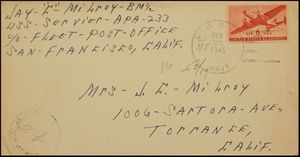 JAY-E-MILROY-BM1/c
USS-SERVIER-APA-233
c/o FLEET-POST-OFFICE
SAN-FRANCISCO, CALIF.
U.S.
FEB
1945
NAVY
6¢
UNITED STATES OF AMERICA
Mrs-J.E-Milroy
1006-SARTORA-AVE,
TORRANCE,
CALIF.